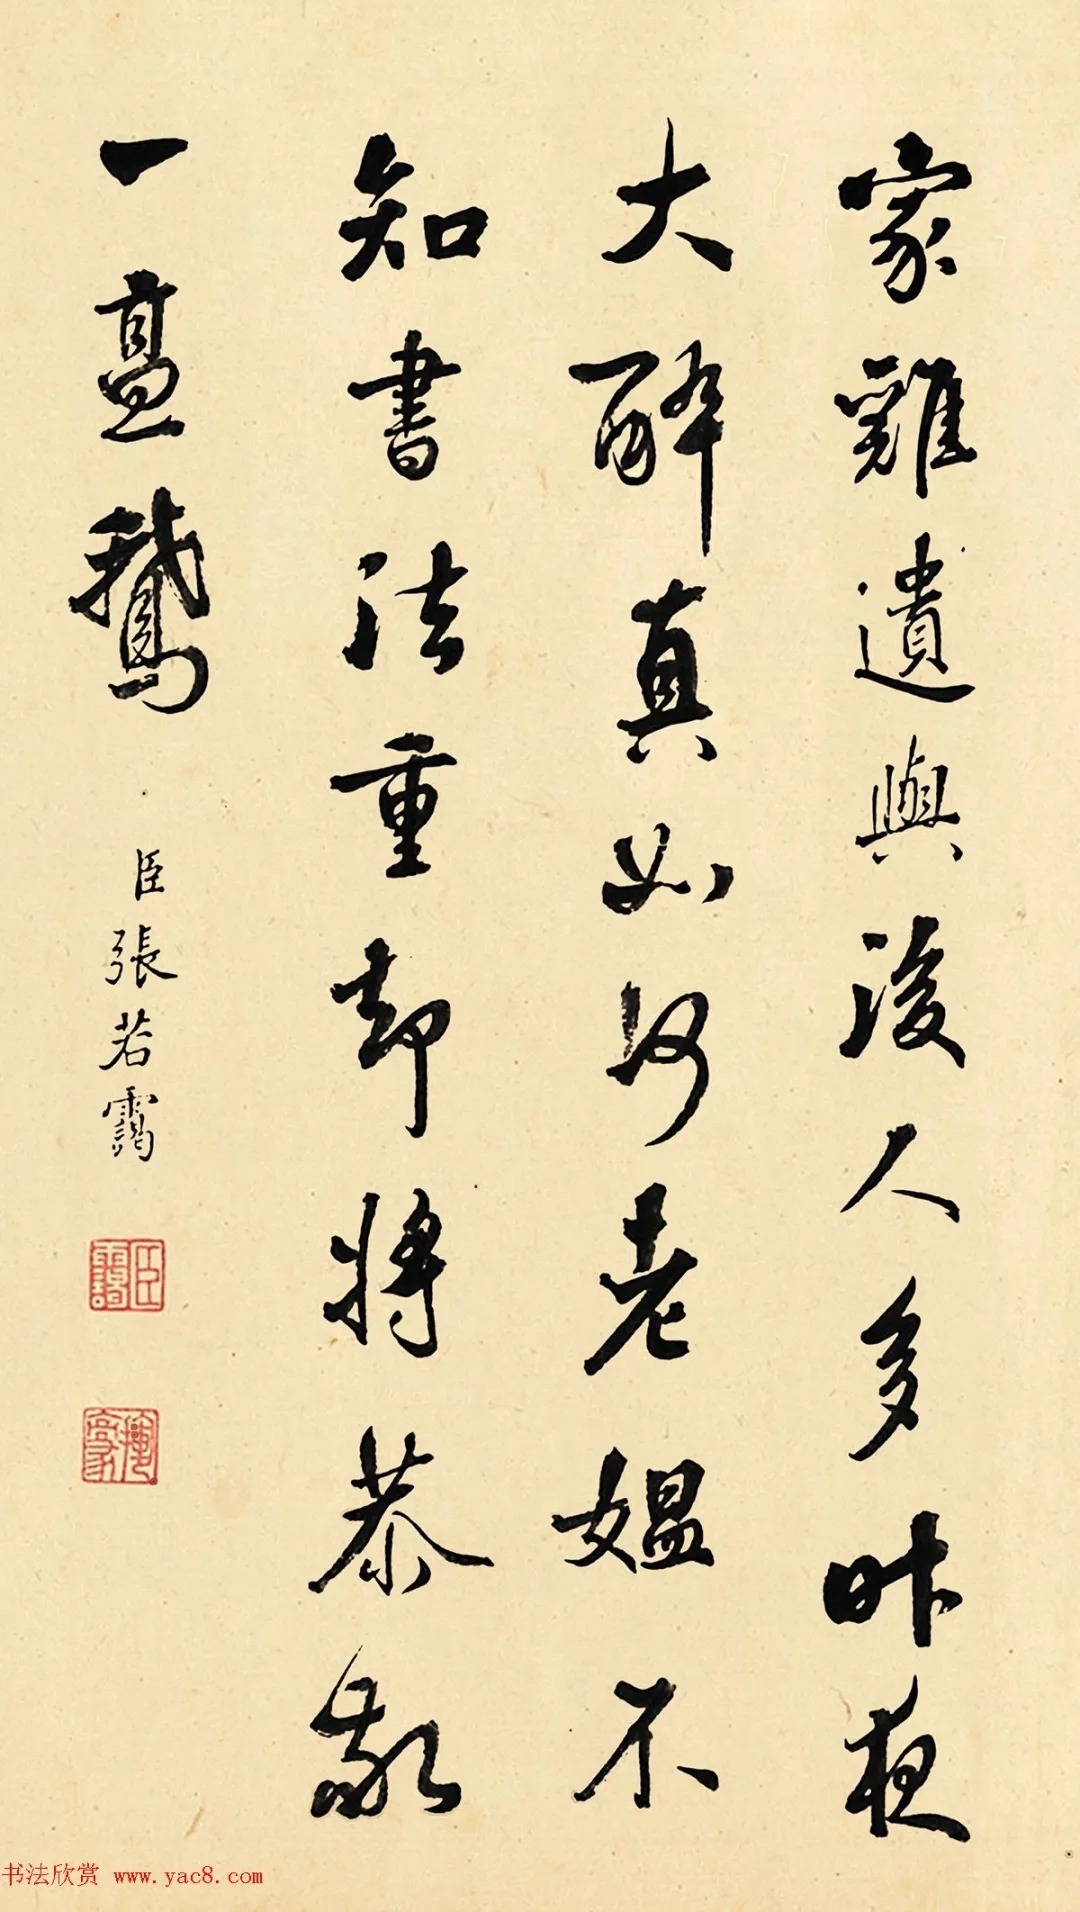 家雞遺與後人多昨夜
大醉真如何老媼不
知書法重却將恭敬
一鵝
臣張若靄
臣靄
书法欣赏 www.yac8.com